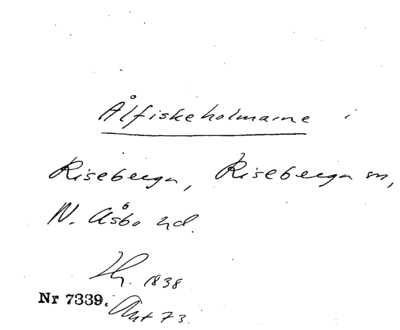 Ålfiskeholmarne i
Riseberga, Riseberga sn,
N. Åsbo hd.
1838
Nr 7339. Akt 73.